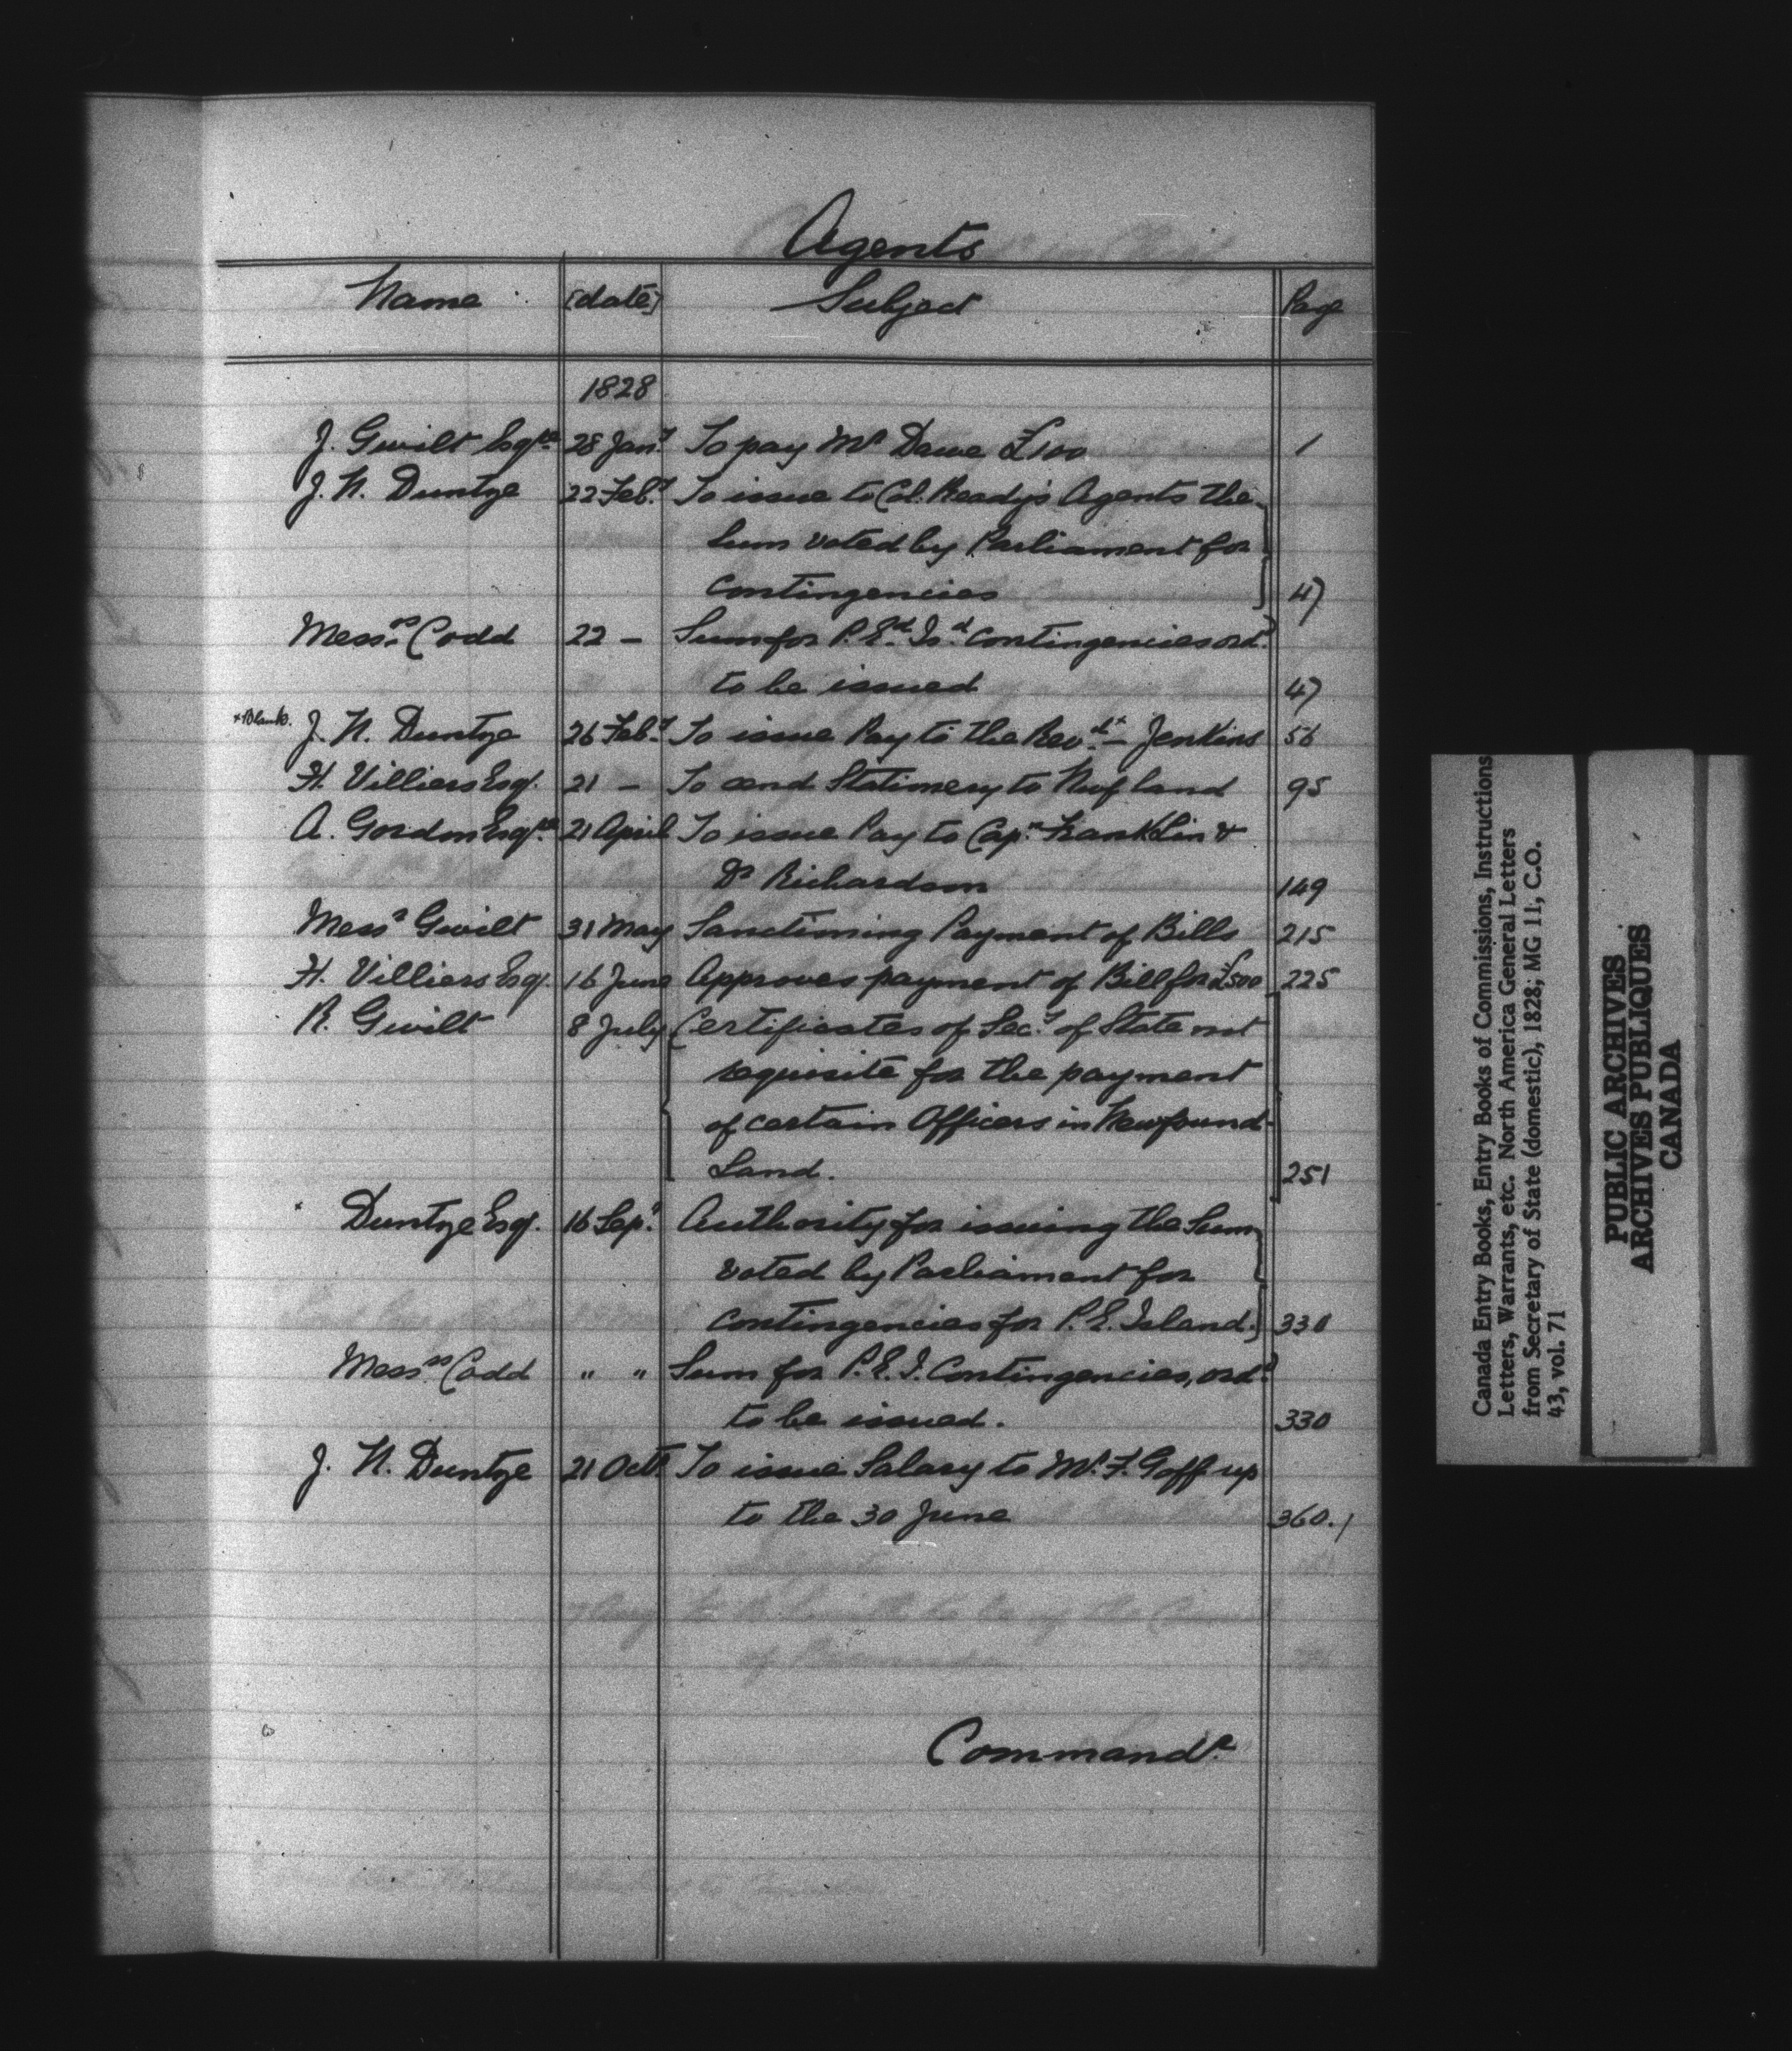 Agents
Name [date] Subject Page
1828
J. Gwilt Esqre 28 Jany To pay Mr Dawe £100 1
J. N. Duntze 22 Feby To issue to Col. Ready's Agents the
Sum voted by Parliament for
Contingencies 47
Messrs Codd 22 — Sum for P. Ed. Isd. Contingencies ord.
to be issued 47
*Blank. J. N. Duntze 26 Feby To issue Pay to the Revd.* — Jenkins 56
H. Villiers Esq. 21 — To send Stationery to Newfland 95
A. Gordon Esqre 21 April To issue Pay to Capn. Franklin &
Dr Richardson 149
Messs Gwilt 31 May Sanctioning Payment of Bills 215
H. Villiers Esq. 16 June Approves payment of Bill for £500 225
R. Gwilt 8 July Certificates of Secy. of State not
requisite for the payment
of certain Officers in Newfound-
land. 251
Duntze Esq. 16 Sepr Authority for issuing the Sum
voted by Parliament for
Contingencies for P. E. Island. 330
Messrs Codd " " Sum for P. E. I. Contingencies, ord.
to be issued. 330
J. N. Duntze 21 Octr To issue Salary to Mr. F. Goff up
to the 30 June 360.
Commandr
Canada Entry Books, Entry Books of Commissions, Instructions
Letters, Warrants, etc. North America General Letters
from Secretary of State (domestic), 1828; MG 11, C.O.
43, vol. 71
PUBLIC ARCHIVES
ARCHIVES PUBLIQUES
CANADA